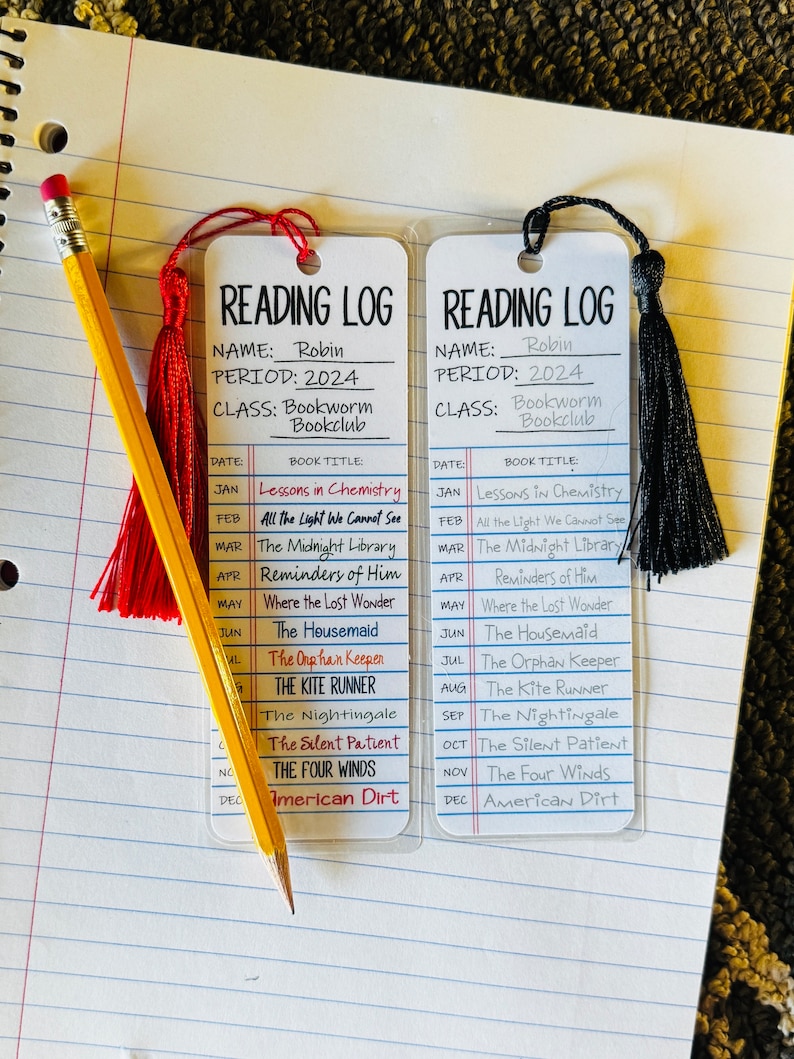 READING LOG
NAME: Robin
PERIOD: 2024
CLASS: Bookworm
Bookclub
DATE: BOOK TITLE:
JAN Lessons in Chemistry
FEB All the Light We Cannot See
MAR The Midnight Library
APR Reminders of Him
MAY Where the Lost Wonder
JUN The Housemaid
UL The Orphan Keeper
G THE KITE RUNNER
The Nightingale
O The Silent Patient
NO THE FOUR WINDS
DEC American Dirt
READING LOG
NAME: Robin
PERIOD: 2024
CLASS: Bookworm
Bookclub
DATE: BOOK TITLE:
JAN Lessons in Chemistry
FEB All the Light We Cannot See
MAR The Midnight Library
APR Reminders of Him
MAY Where the Lost Wonder
JUN The Housemaid
JUL The Orphan Keeper
AUG The Kite Runner
SEP The Nightingale
OCT The Silent Patient
NOV The Four Winds
DEC American Dirt